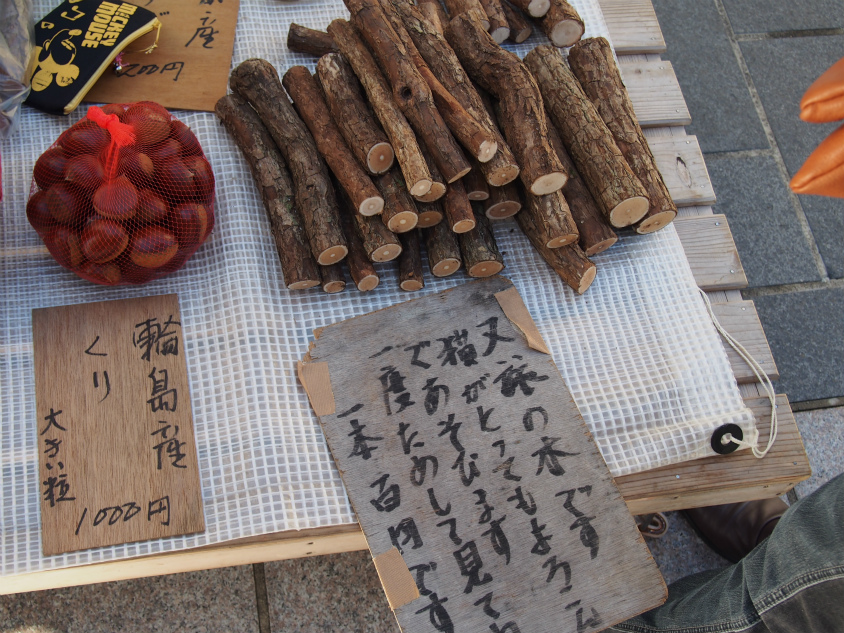 MICKEY
MOUSE
産
輪島産
くり
大きい粒
1000円
又旅の木です
猫がとってもよろこん
であそびます
一度ためして見て
一本 百円です